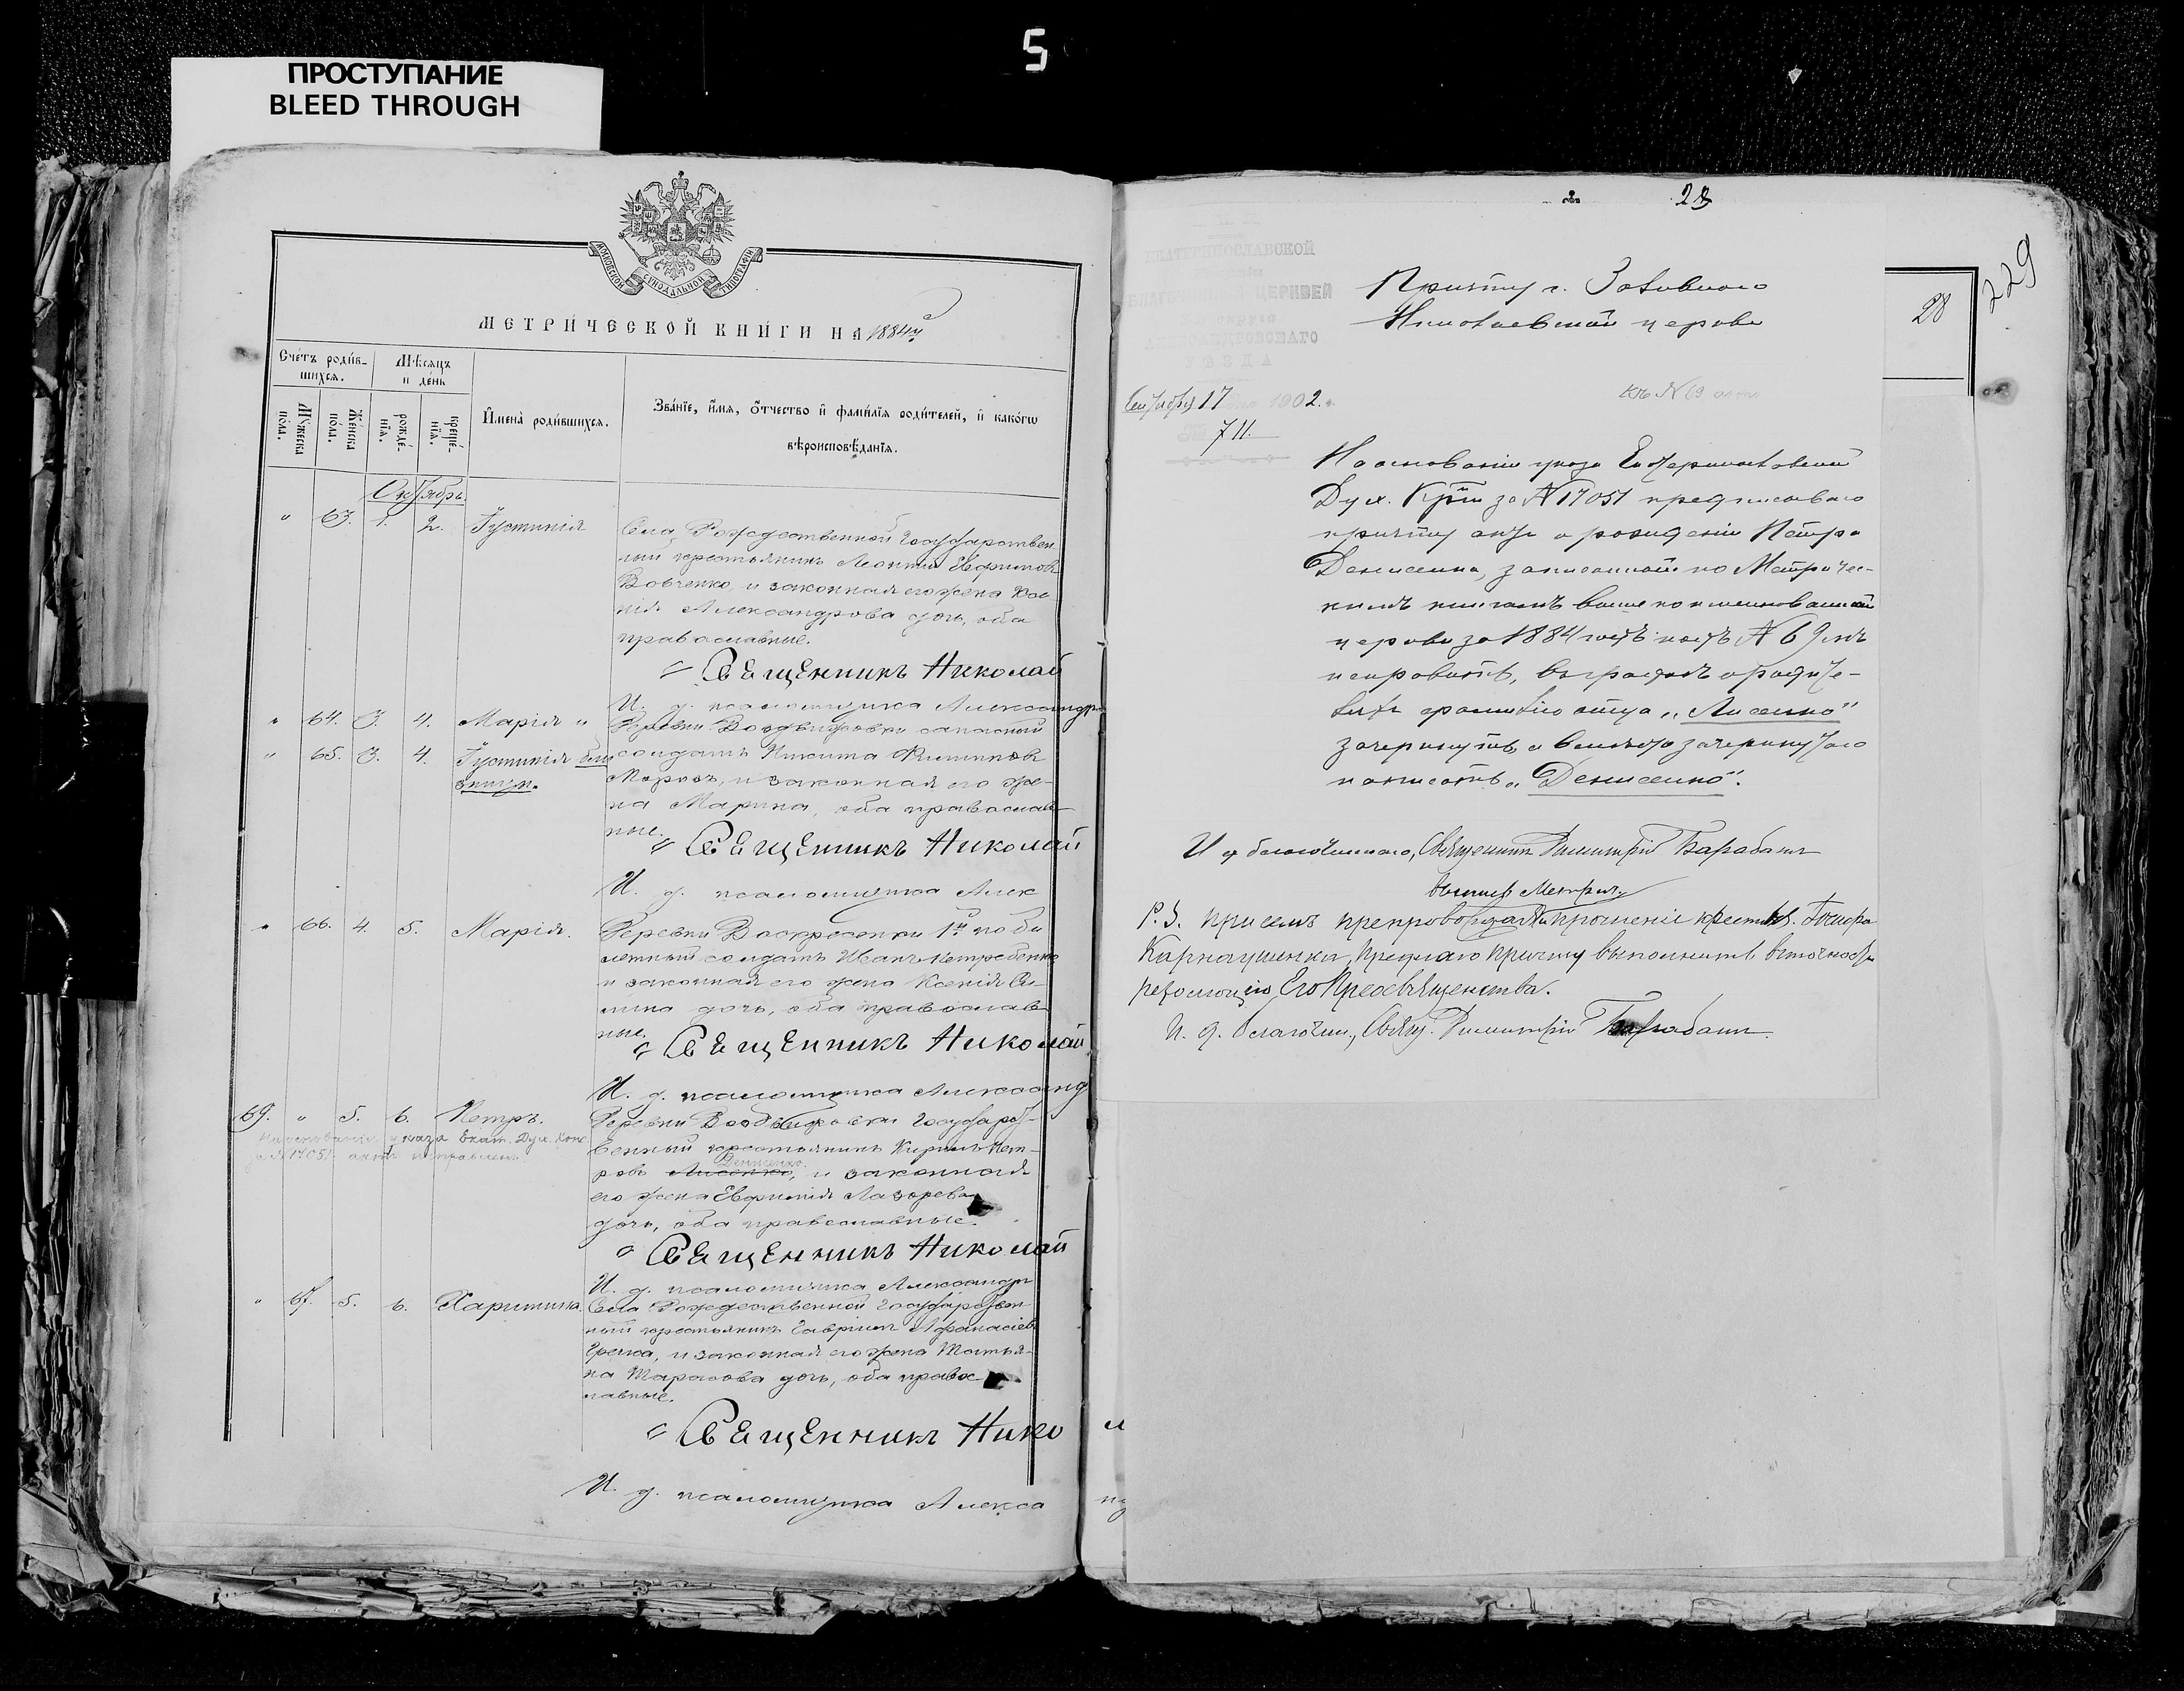 5
ПРОСТУПАНИЕ
BLEED THROUGH
МОСКОВСКОЙ СѴНОДАЛЬНОЙ ТИПОГРАФІИ
МЕТРИ́ЧЕСКОЙ КНИ́ГИ НА 1884 й
Сче́тъ роди́в-
шихсѧ.
Мѣ́сѧцъ
и де́нь
Мꙋ́жеска
по́ла.
Же́нска
по́ла.
рожде́-
нїѧ.
креще́-
нїѧ.
И҆мена̀ роди́вшихсѧ.
Зва́нїе, и҆́мѧ, ѻ҆́тчество и҆ фами́лїѧ роди́телей, и҆ како́гѡ
вѣроисповѣ́данїѧ.
Октябрь.
" 63. 1. 2. Іустинія
Села Рождественной государствен
ный крестьянинъ Леонтій Ефимовъ
Вовченко, и законная его жена Ксе
нія Александрова дочь, оба
православные.
Священникъ Николай
И. д. псаломщика Александръ
" 64. 3. 4. Марія "
Деревни Воздвижовки запасный
" 65. 3. 4. Іустинія близ
ницы.
солдатъ Никита Филиповъ
Морозъ, и законная его же-
на Марина, оба православ
ные.
Священникъ Николай
И. д. псаломщика Алек
" 66. 4. 5. Марія.
Деревни Воскресенки 1й по би
летный солдатъ Иванъ Петребенко
и законная его жена Ксенія
дочь, оба православ
ные.
Священникъ Николай
И. д. псаломщика Александ
69. " 5. 6. Петръ.
На основаніи указа Екат. Дух. Конс.
за № 17051 актъ исправленъ
Деревни Воздвижовки государст-
венный крестьянинъ Кирилъ Пет-
Денисенко
ровъ Лисенко, и законная
его жена Евфимія Лазарева
дочь, оба православные.
Священникъ Николай
И. д. псаломщика Александръ
" 67. 5. 6. Харитина.
Села Рождественной государствен
ный крестьянинъ Гавріилъ Афанасіевъ
Гречка, и законная его жена Татья-
на Тарасова дочь, оба право
славные.
Священникъ Нико
И. д. псаломщика Алекса
28
229
28
ЕКАТЕРИНОСЛАВСКОЙ
БЛАГОЧИННЫЙ ЦЕРКВЕЙ
округа
АЛЕКСАНДРОВСКАГО
УѢЗДА
Сентября 17 дня 1902 г.
№ 711.
Причту с.
Николаевской церкви
къ № 69 акта
На основаніи указа Екатеринославской
Дух. К-ріи за № 17051 предписываю
причту актъ о рожденіи Петра
Денисенка, записанный по Метричес-
кимъ книгамъ вышепоименованной
церкви за 1884 годъ подъ № 69 мъ
исправить, въ графѣ о родите-
ляхъ фамилію отца "Лисенко"
зачеркнуть, а вмѣсто зачеркнутаго
написать "Денисенко".
И д благочиннаго, Священникъ Димитрій Барабашъ
P.S. При семъ препровождая прошеніе крест.
Карнаушенка, предлаго причту выполнить въ точности
резолюцію Его Преосвященства.
И. д. благочин., Свящ. Димитрій Барабашъ